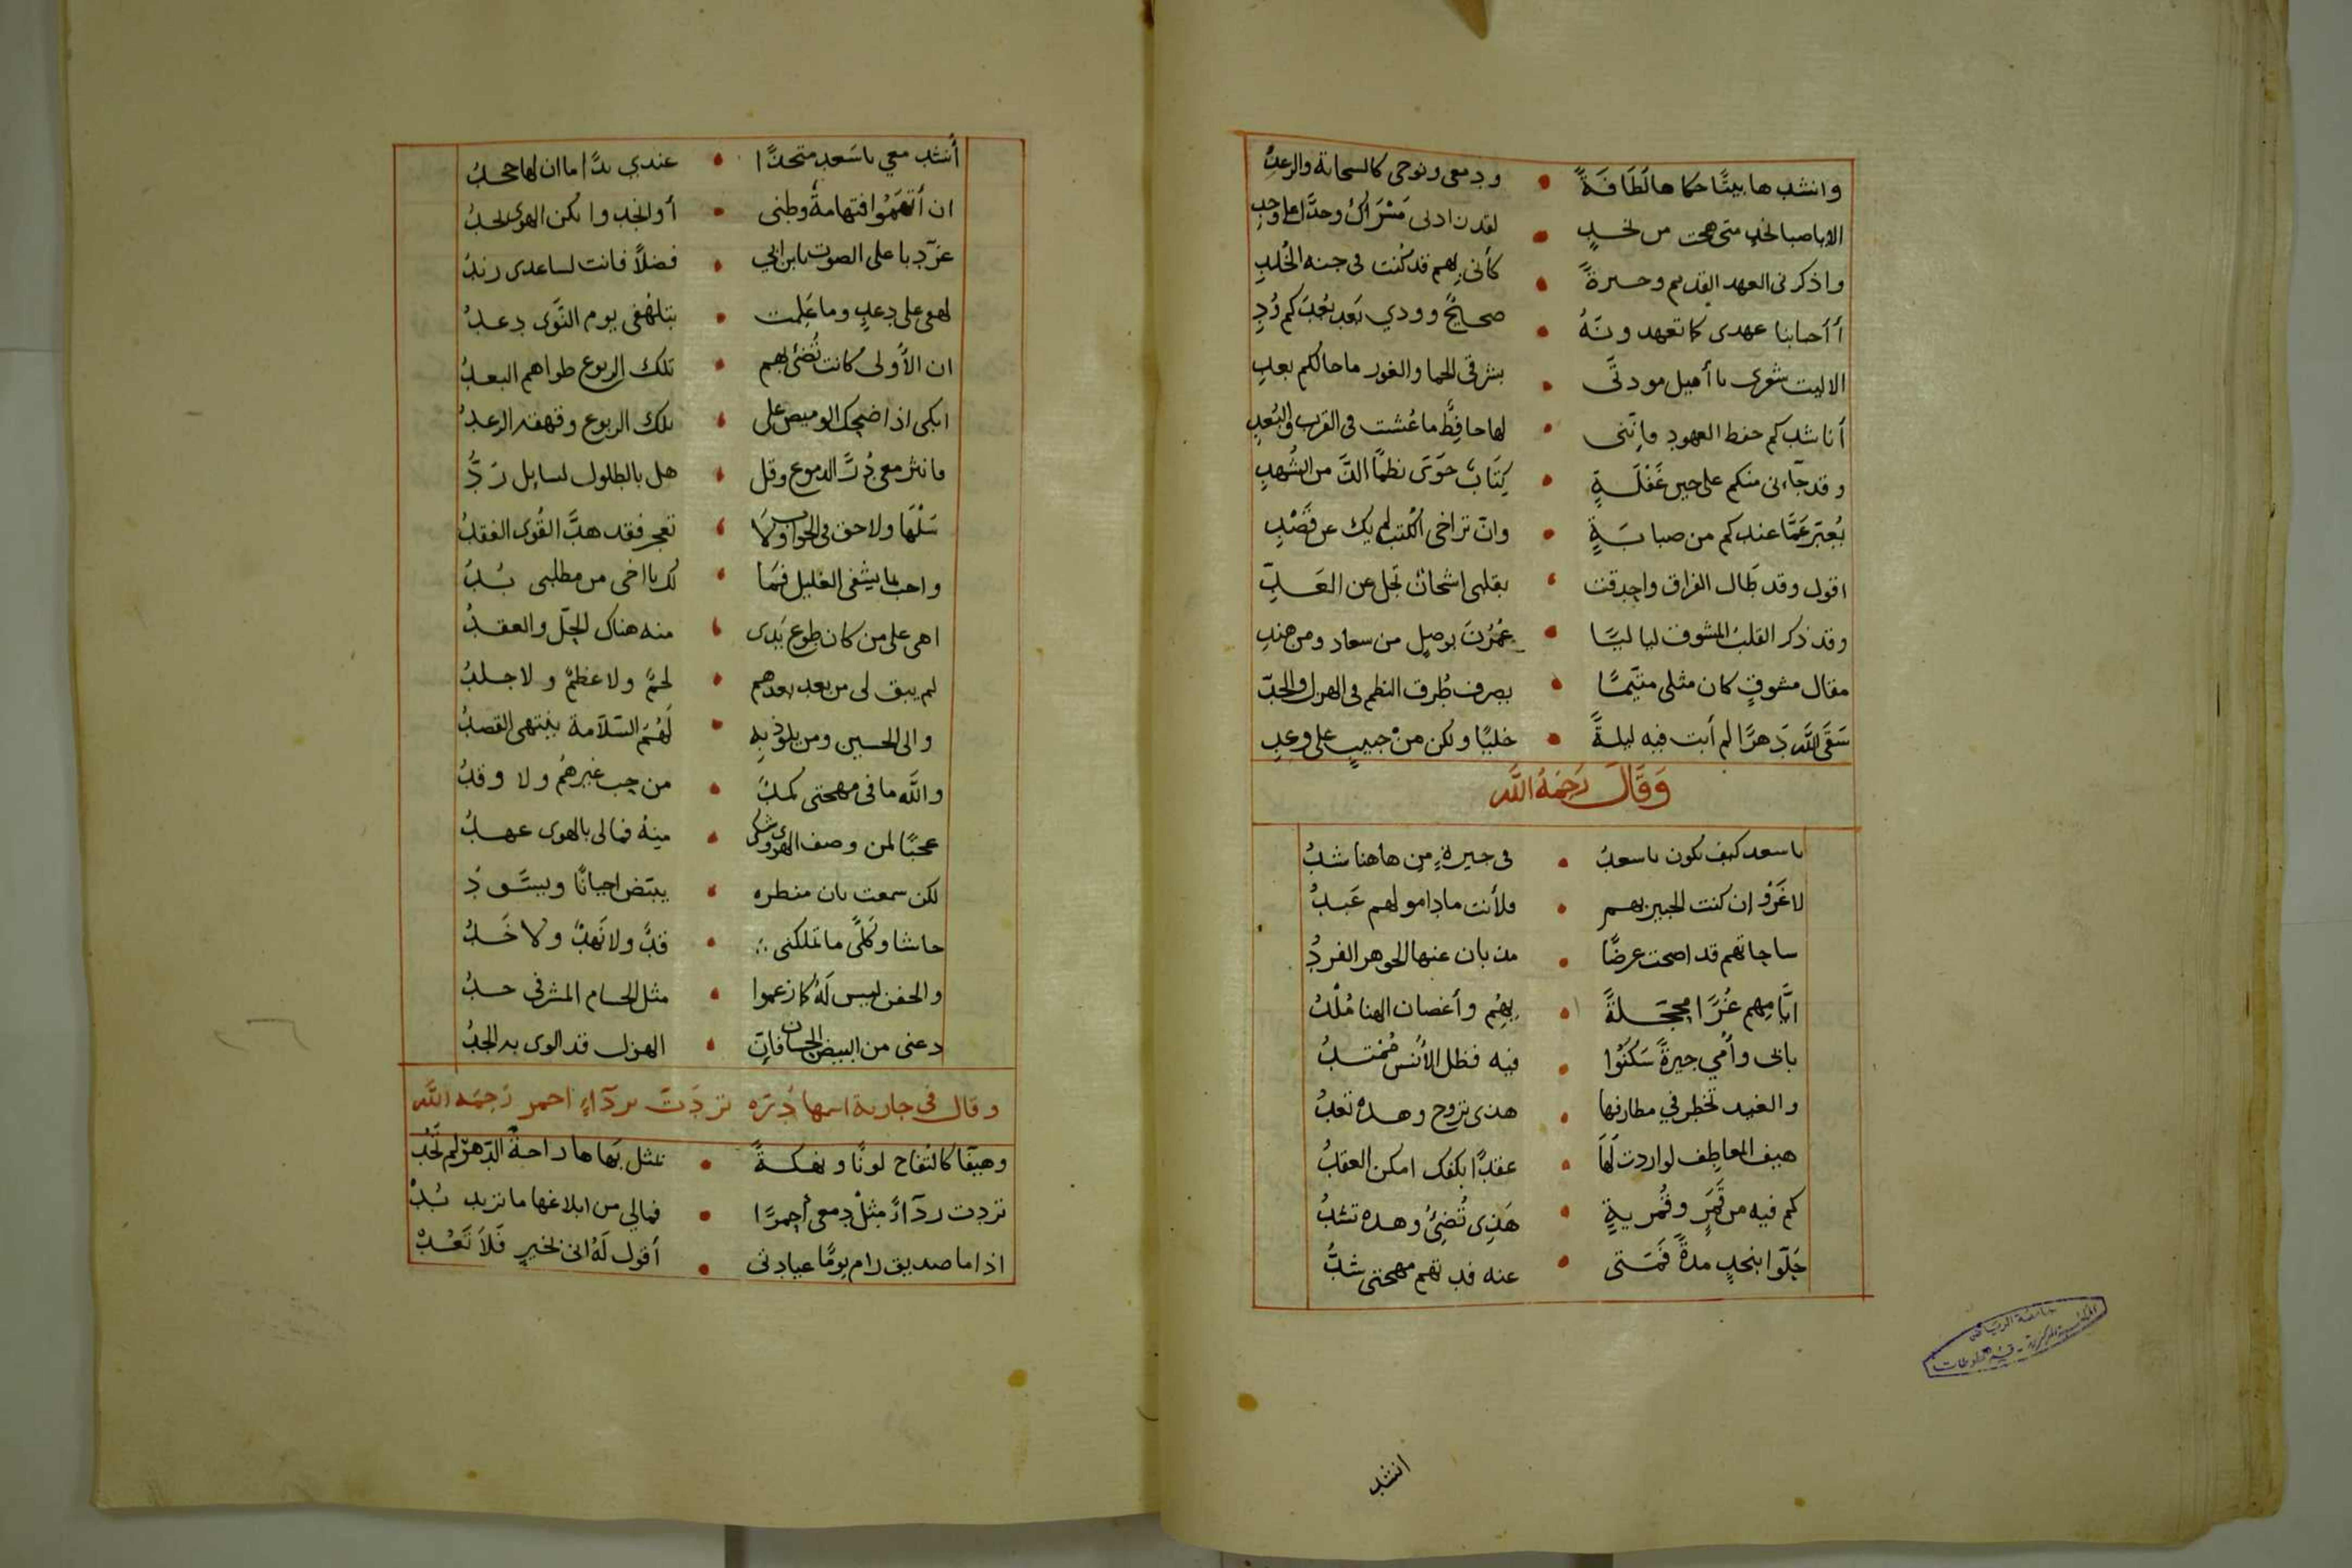 وانشدها بيتًا حكاها لَطَافَةً • ودمعى ونوحى كالسحابة والرعدِ
الا يا صبا نجدٍ متى هجت من نجدٍ • لقد زادنى مَسْرَاكُ وجدًا على وجدِ
واذكرنى العهد القديم وحسرةً • كأنى بهم قد كنت فى جنه الخُلدِ
أأحبابنا عهدى كما تعهدونَهُ • صحايحٌ وودي بَعد بُعْدَكم وُدِ
الا ليت شعرى يا أهيل مودتى • بشرقى الحما والغور ما حالكم بعدِ
أناشدكم حفظ العهود فإننى • لها حافِظٌ ما عُشت فى القرب والبُعدِ
وقد جآءنى منكم على حين غَفْلَةٍ • كِتَابٌ حَوَى نظمًا الذَّ من الشُهدِ
يُعبّر عَمَّا عندكم من صبابَةٍ • وانْ تراخى الكُتب لم يك عن قَصْدِ
اقول وقد طَال الفراق واحدقت • بقلبى اشجانٌ تجل عن العَدِّ
وقد ذكر القلبُ المشوقُ لياليًا • عُمُرْنَ بوصلٍ من سعاد ومن هندِ
مقال مشوقٍ كان مثلى متيّمًا • بصرف طُرق النظم فى الهزل والجدّ
سَقَى اللَّه دَهرًا لم أبت فيه ليلةً • خليًا ولكن منْ حبيبٍ على وعدِ
وَقَالَ رَحِمَهُ اللَّه
يا سعد كيف تكون يا سعدُ • فى حيرةٍ من هاهنا شدُ
لا غَرْوَ ان كنت الخبير بهم • فلأنت ما دامو لهم عَبدُ
ساحاتهم قد اصبحت عرضًا • مذ بان عنها الجوهر الفردُ
ايَّامهم غُرًّا محجّلةً • بِهِم وأغصان الهنا مُلْدُ
بابى وأمي جيرةً سَكنُوا • فيه فظل الأُنس مُمْتدُ
والغيد تخطر في مطارفها • هذى تروح وهذه تغدُ
هيف المعاطِف لو اردتَ لَهَا • عقدًا بكفك امكن العقدُ
كم فيه من قَمَرٍ وقُمريةٍ • هَذِى تُضِئُ وهذه تشدُ
حَلّوا بنجدٍ مدةً فَمَتى • عنه فدتهم مهجتى شدُّ
انشد
أنشد معي يا سَعد متحدًا • عندي يدًا ما ان لها جحدُ
ان أتهَمُوا فتهامةُ وطنى • أو انجدوا يكن الهوى نجدُ
غرّد با على الصوت يا بن ابي • فضلاً فانت لساعدى زندُ
لهفى على دعدٍ وما عَلِمت • بتلهّفى يوم النَّوَى دعدُ
ان الأُولى كانت تُضئ بهم • تلك الربوع طواهم البعدُ
ابكى اذا ضحك الوميض على • تلك الربوع وقهقه الرعدُ
فانثر معى دُرَّ الدموع وقل • هل بالطلول لسايل رَدُّ
سَلْهَا ولا حق فى الجواب ولَا • تعجز فقد هدَّ القُوى الفقدُ
واجب لما يشفى الغليل فَمَا • لك يا اخى من مطلبى بُدُ
اهى على من كان طوع يَدى • منه هناك الحلّ والعقدُ
لم يبق لى من بعد بعدهم • لحمٌ ولا عظمٌ ولا جلدُ
والى الحسين ومن يلوذ بِهِ • لَهُمُ السّلامة ينتهى القصدُ
واللَّه ما فى مهجتى كمدٌ • من حب غيرهُم ولا وقدُ
عجبًا لمن وصف الهوى وشكى • مِنهُ فما لى بالهوى عهدُ
لكن سمعت بان منظره • يبيّض احيانًا ويسَّودُ
حاشا وكَلّى ما تملكنى • قدٌ ولا نَهدٌ ولا خَدُ
والجفن ليس لَهُ كما زعموا • مثل الحسام المشرفى حدُ
دعنى من البيض الحسان فَاِن • الهزل قد الوى به الجدُ
وقال فى جارية اسمها دُرّه تردّت بردآءٍ احمر رَحِمَه اللَّه
وهيفَا كالتفاح لونًا ونهكةً • بمثل بَهاها راحة الدّهرْ لم تَجُد
تردت ردآءً مِثلْ دمعى أحمرًا • فمالى من ابلاغها ما تريد بُدْ
اذا ما صديق رام يومًا عيادتى • أقول لَهُ انى بخيرٍ فَلاَ تَعُدْ
جامعة الرياض
المكتبة المركزية - قسم المخطوطات